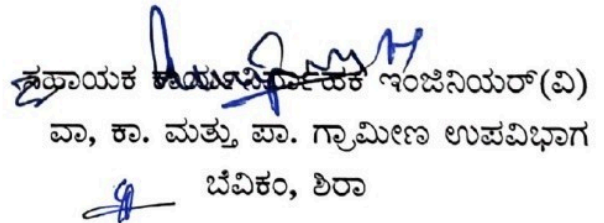 ಸಹಾಯಕ ಕಾರ್ಯನಿರ್ವಾಹಕ ಇಂಜಿನಿಯರ್(ವಿ)
ವಾ, ಕಾ. ಮತ್ತು ಪಾ. ಗ್ರಾಮೀಣ ಉಪವಿಭಾಗ
ಬೆವಿಕಂ, ಶಿರಾ